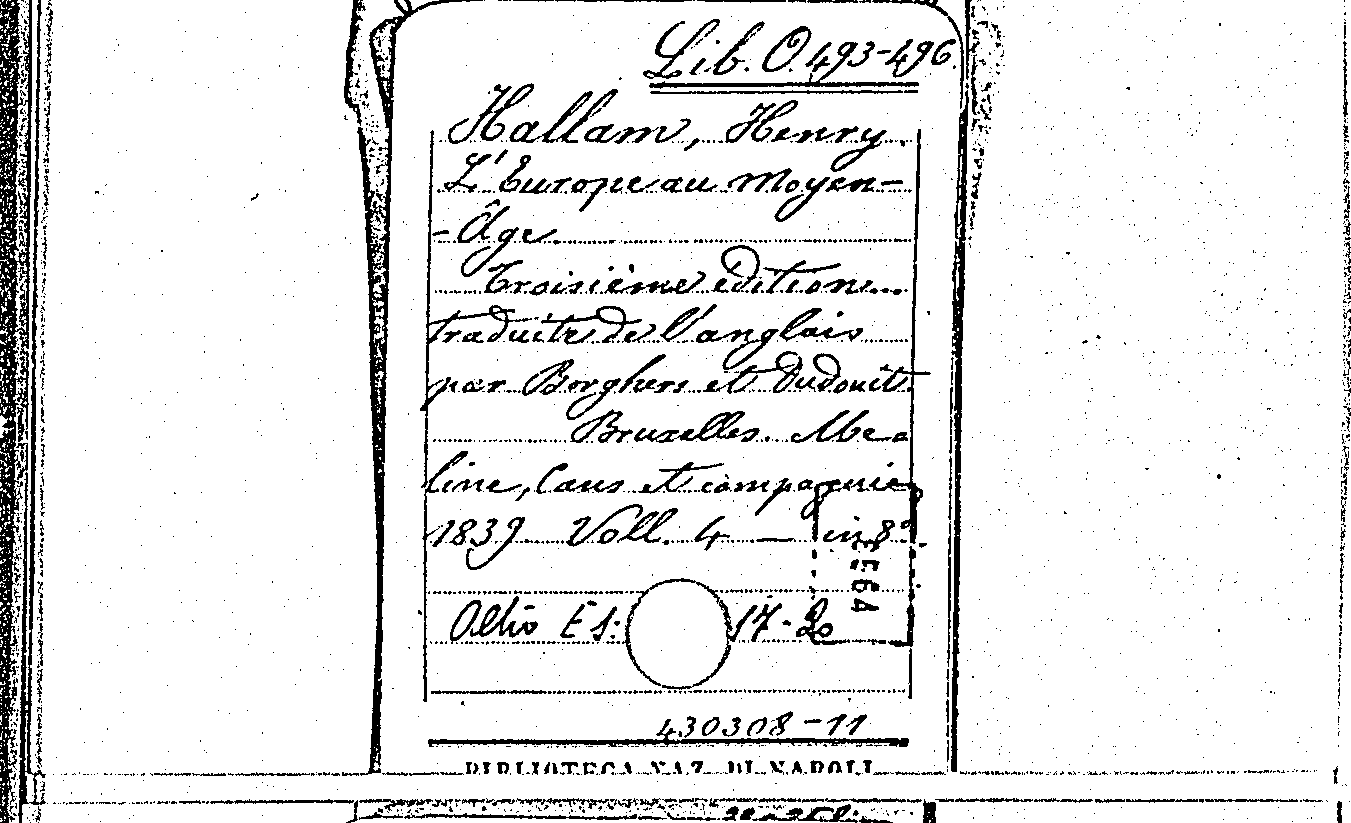 Lib. O. 493-496.
Hallam, Henry.
L'Europe au moyen-
-âge.
Troisième édition...
traduite de l'anglais
par Borghers et Dudouit.
Bruxelles. Me-
line, Cans et compagnie
1839 Voll. 4 — in 8°.
3564
Altro Es: 17-20
430308-11
BIBLIOTECA NAZ. DI NAPOLI